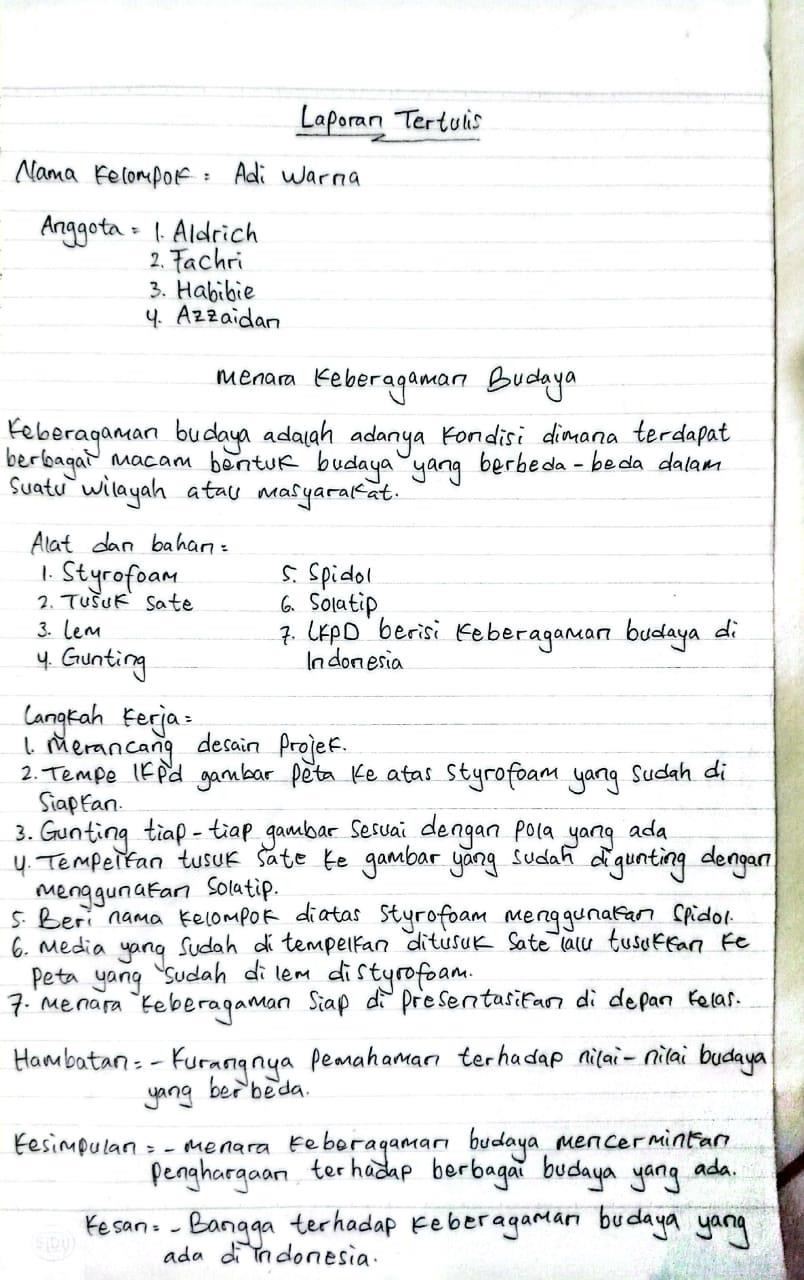 Laporan Tertulis
Nama Kelompok : Adi Warna
Anggota : 1. Aldrich
2. Fachri
3. Habibie
4. Azzaidan
Menara Keberagaman Budaya
Keberagaman budaya adalah adanya kondisi dimana terdapat
berbagai macam bentuk budaya yang berbeda-beda dalam
suatu wilayah atau masyarakat.
Alat dan bahan :
1. Styrofoam
2. Tusuk sate
3. lem
4. Gunting
5. Spidol
6. Solatip
7. LKPD berisi keberagaman budaya di
Indonesia
Langkah kerja :
1. Merancang desain Projek.
2. Tempe lkpd gambar peta ke atas styrofoam yang sudah di
siapkan.
3. Gunting tiap-tiap gambar sesuai dengan pola yang ada
4. Tempelkan tusuk sate ke gambar yang sudah digunting dengan
menggunakan solatip.
5. Beri nama kelompok diatas styrofoam menggunakan spidol.
6. Media yang sudah di tempelkan ditusuk sate lalu tusukkan ke
peta yang sudah di lem distyrofoam.
7. Menara keberagaman siap di presentasikan di depan kelas.
Hambatan : - Kurangnya pemahaman terhadap nilai-nilai budaya
yang berbeda.
Kesimpulan : - Menara keberagaman budaya mencerminkan
Penghargaan terhadap berbagai budaya yang ada.
Kesan : - Bangga terhadap keberagaman budaya yang
ada di Indonesia.
SIDU